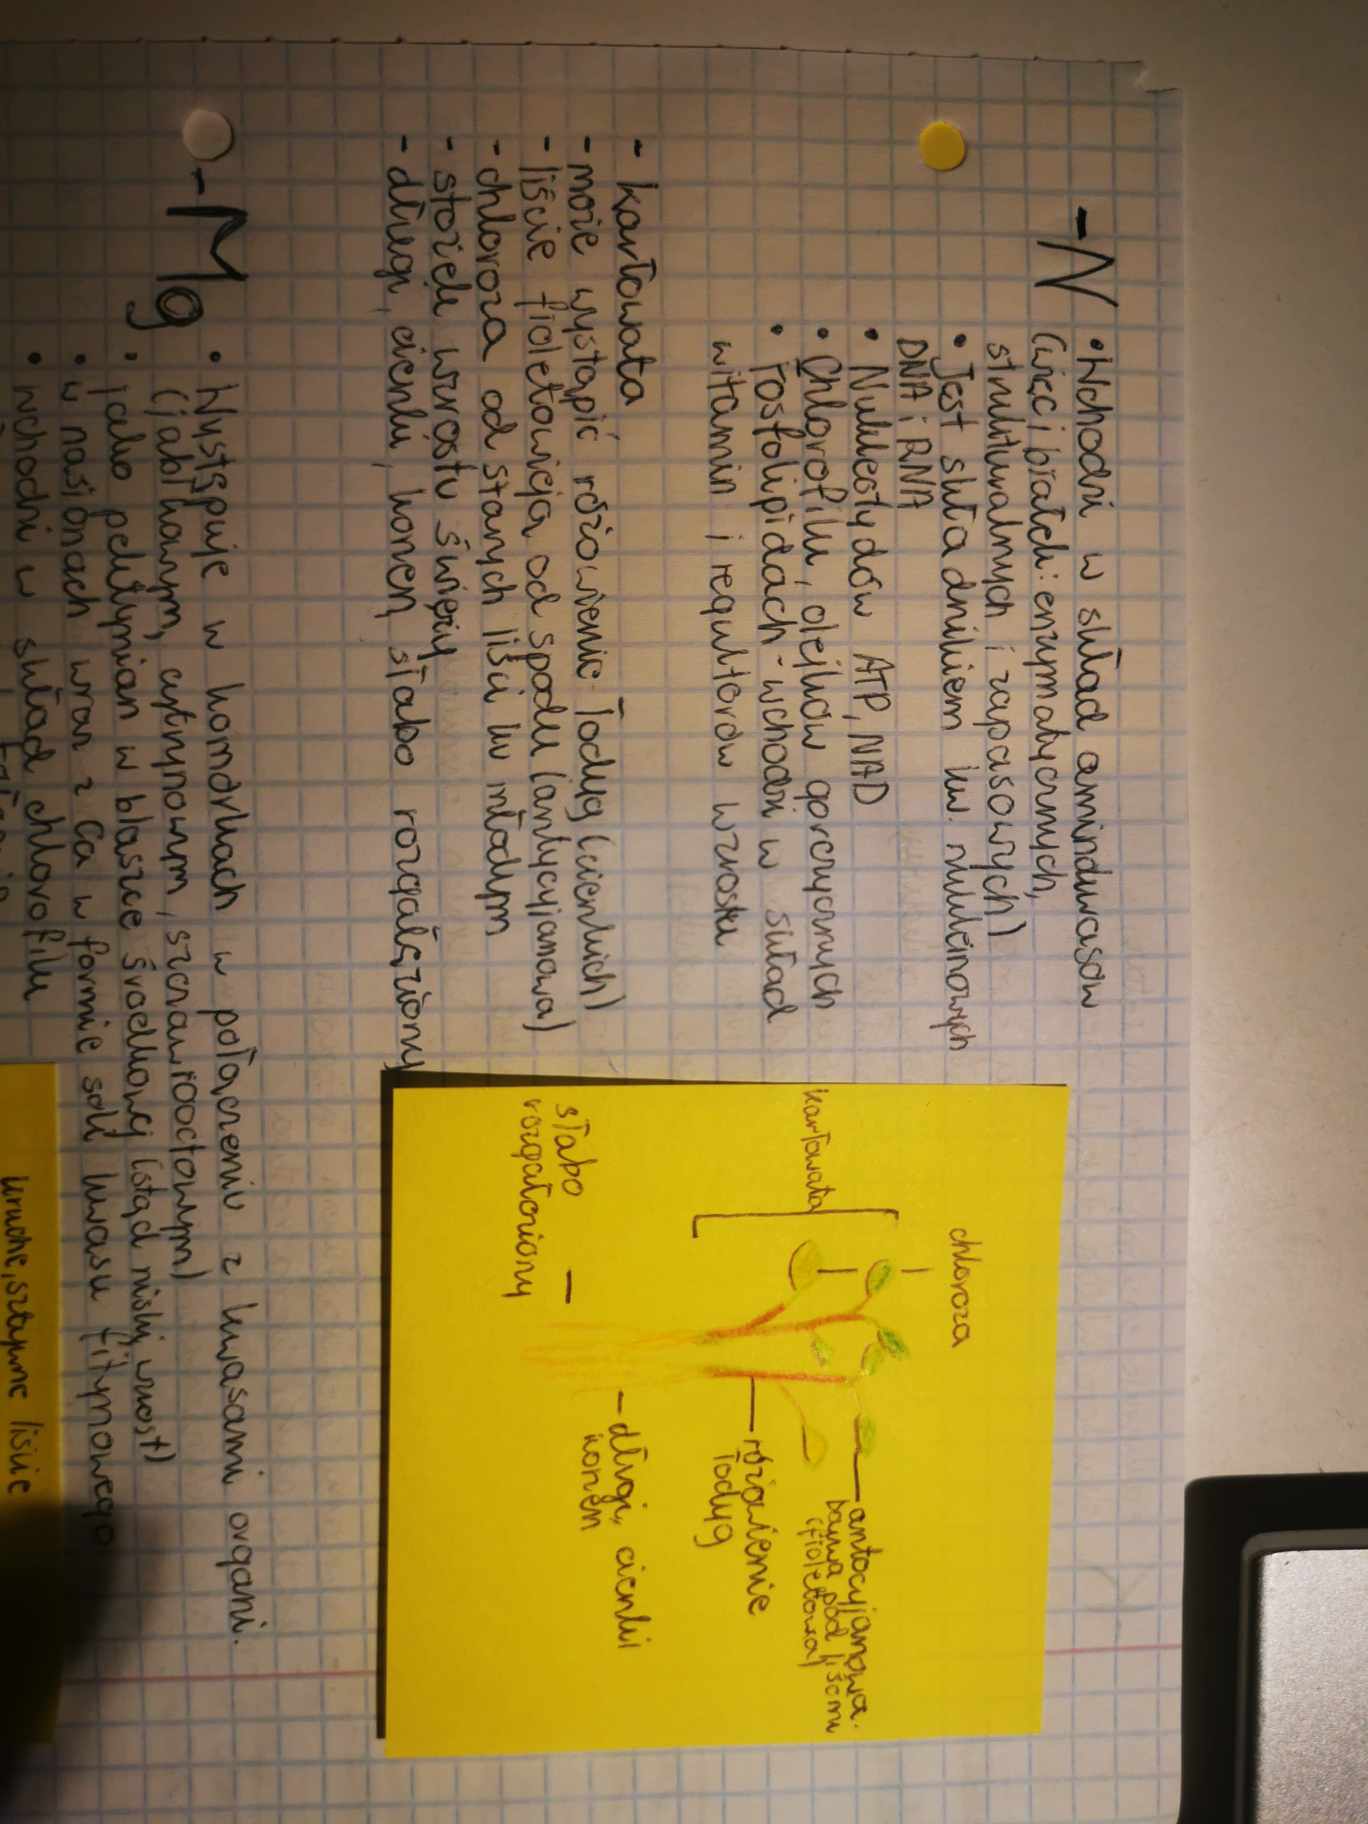 -N
• Wchodzi w skład aminokwasów
(więc i białek: enzymatycznych,
strukturalnych i zapasowych)
• Jest składnikiem kw. nukleinowych
DNA i RNA
• Nukleotydów ATP, NAD
• Chlorofilu, olejków gorczycznych
• Fosfolipidach - wchodzi w skład
witamin i regulatorów wzrostu
- karłowata
- może wystąpić różowienie łodyg (cienkich)
- liście fioletowieją od spodu (antycyjanowa)
- chloroza od starych liści ku młodym
- stożek wzrostu świeży
- długi, cienki, korzeń słabo rozgałęziony
chloroza
karłowata
antocyjanowa
barwa pod liśćmi
(fioletowa)
różowienie
łodyg
- długi, cienki
korzeń
słabo
rozgałęziony
-Mg
• Występuje w komórkach w połączeniu z kwasami organi.
(jabłkowym, cytrynowym, szczawiooctowym)
• jako pektynian w blaszce środkowej (stąd niski wzrost)
• w nasionach wraz z Ca w formie soli kwasu fitynowego
• wchodzi w skład chlorofilu
kruche, sztywne liście